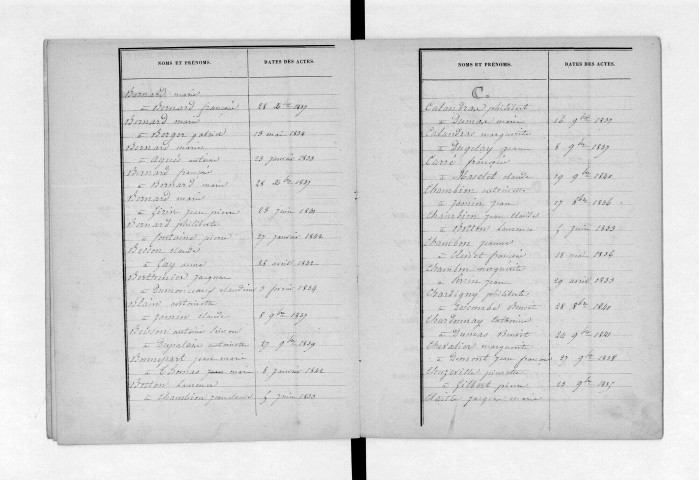 NOMS ET PRÉNOMS. DATES DES ACTES.
Bernard marie
à Bernard françois 28 Xbre 1837
Bernard marie
à Berger gabriel 13 mai 1834
Bernard marie
à Aguis antoine 23 janvier 1833
Bernard françois
à Bernard marie 28 Xbre 1837
Bernard marie
à jean pierre 28 juin 1841
Bernard philiberte
à fontaine pierre 27 janvier 1842
Besson claude
à Gay anne 28 avril 1842
Berthelier jacques
à claudine 3 février 1834
Blain antoinette
à Jamin claude 8 9bre 1839
antoine
à antoinette 27 9bre 1839
jean marie
à Thomas jean marie 8 janvier 1842
Botton laurence
à Chambion jean claude 5 juin 1833
NOMS ET PRÉNOMS. DATES DES ACTES.
C.
Calandras philibert
à Dumas marie 16 9bre 1837
Calandras marguerite
à Dugelay jean 8 9bre 1837
Carré françois
à claude 19 9bre 1840
Chambion antoinette
à Jamin jean 17 8bre 1836
Chambion jean claude
à Botton laurence 5 juin 1833
Chambon jeanne
à françois 18 mai 1836
Chambon marguerite
à jean 29 avril 1833
Chardigny philiberte
à Benoit 28 8bre 1840
Chardonnay
à Dumas Benoit 24 9bre 1841
Chevalier marguerite
à Dumont jean françois 27 9bre 1838
pierrette
à Gilbert pierre 23 9bre 1837
jacques marie